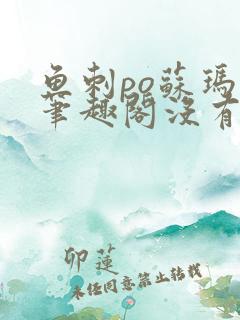 魚刺po蘇瑪
筆趣閣沒有
卯蓮
未任同意禁止转载